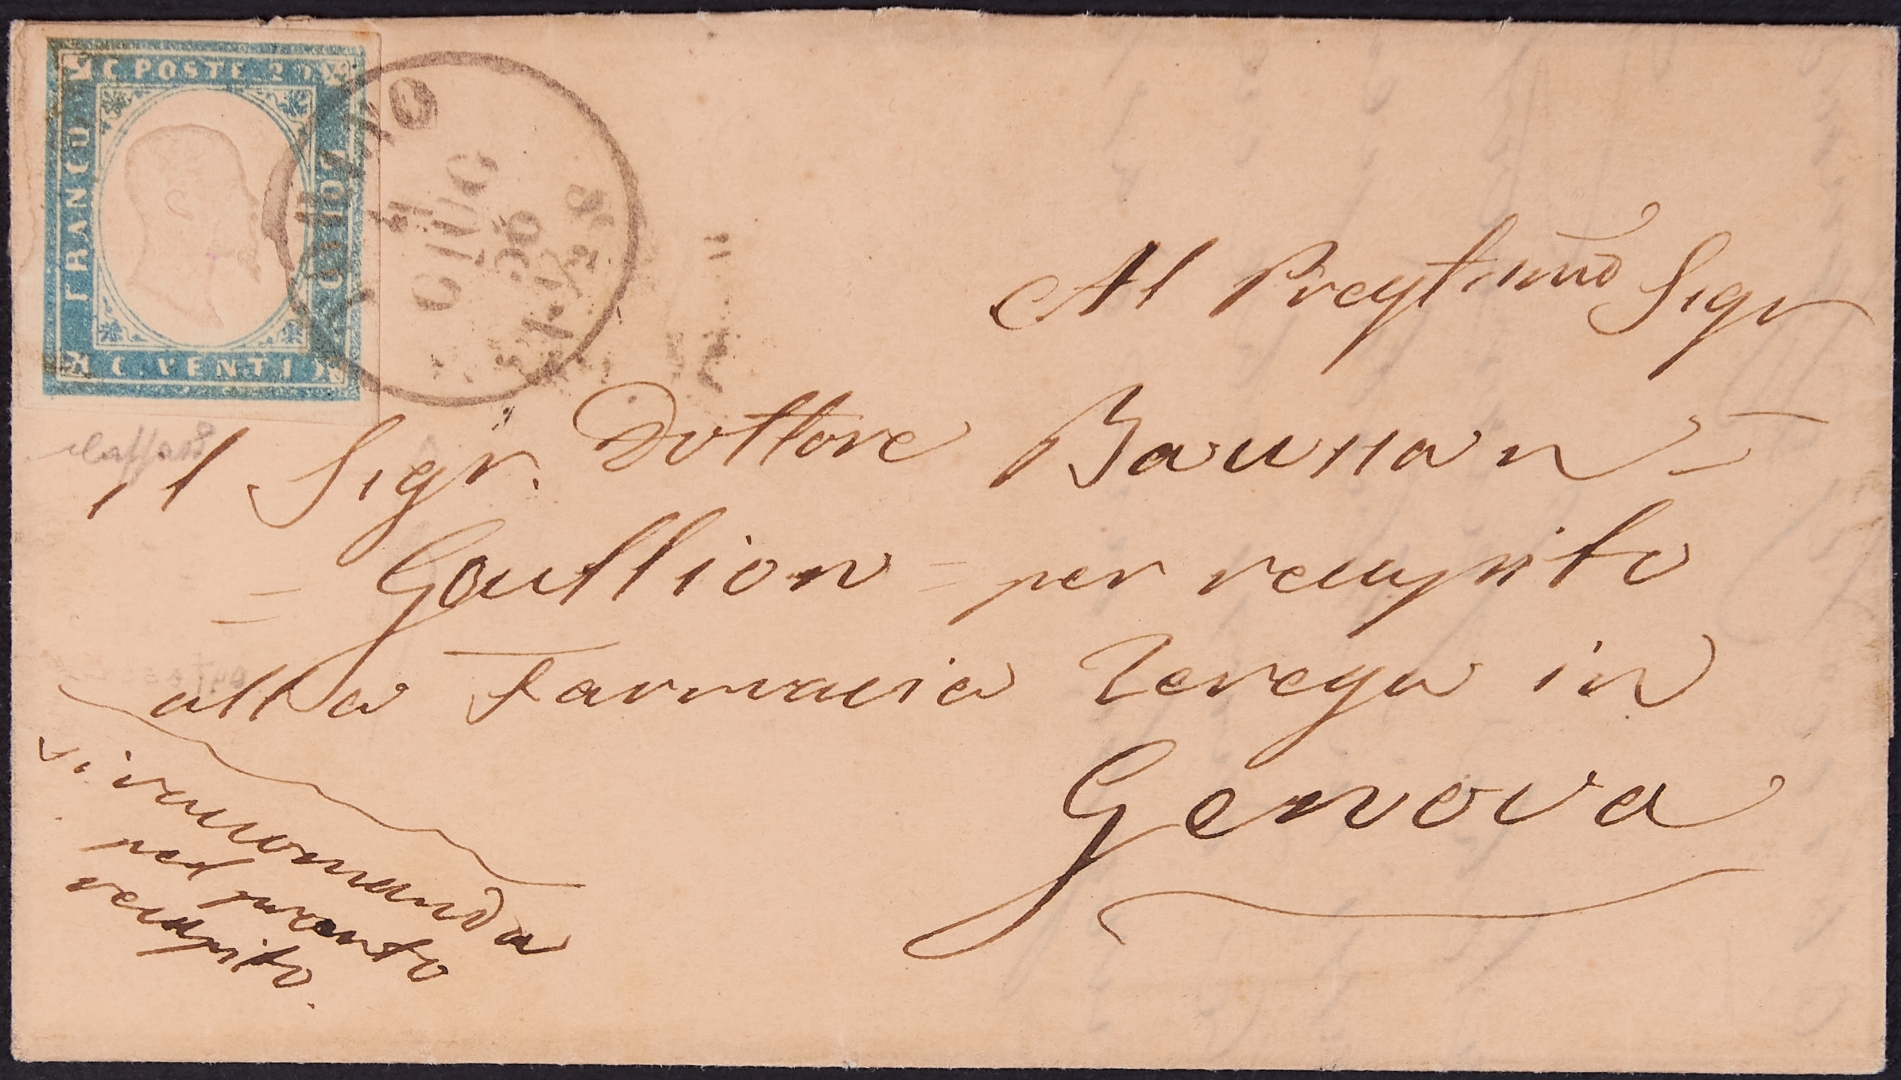 C POSTE 20
FRANCO
BOLLO
C. VENTI
4
GIUG
56
Al Preg.mo Sigr
il Sigr. Dottore Bauman
= Gaullion = per recapito
alla Farmacia Zerega in
Genova
si raccomanda
pel pronto
recapito.